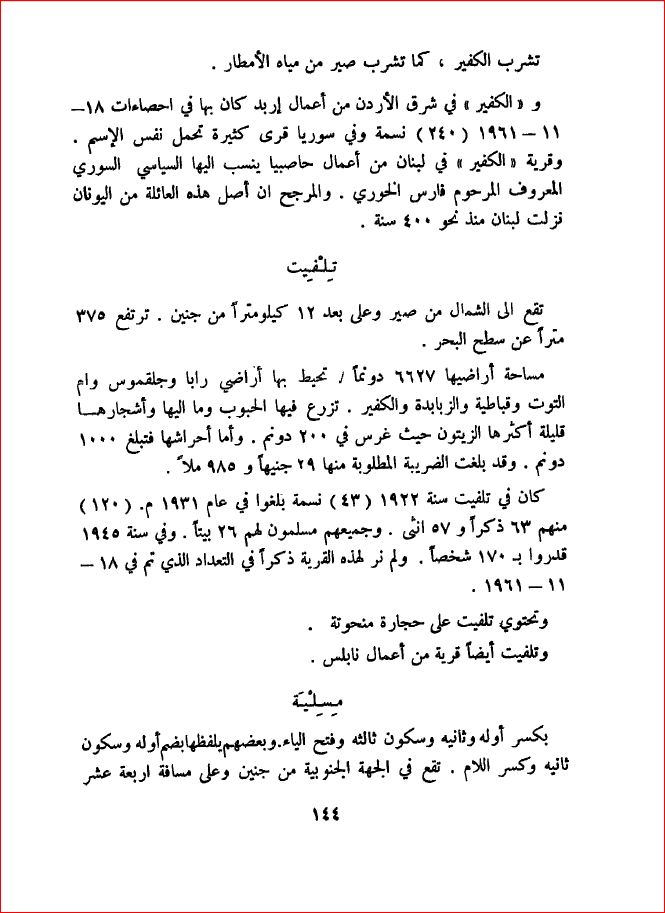 تشرب الكفير ، كما تشرب صير من مياه الأمطار .
و « الكفير » في شرق الأردن من أعمال إربد كان بها في احصاءات ١٨ــ
١١ – ١٩٦١ ( ٢٤٠ ) نسمة وفي سوريا قرى كثيرة تحمل نفس الإسم .
وقرية « الكفير » في لبنان من أعمال حاصبيا ينسب اليها السياسي السوري
المعروف المرحوم فارس الخوري . والمرجح ان أصل هذه العائلة من اليونان
نزلت لبنان منذ نحو ٤٠٠ سنة .
تِـلْـفِـيت
تقع الى الشمال من صير وعلى بعد ١٢ كيلومتراً من جنين . ترتفع ٣٧٥
متراً عن سطح البحر .
مساحة أراضيها ٦٦٢٧ دونماً / تحيط بها أراضي رابا وجلقموس وام
التوت وقباطية والزبابدة والكفير . تزرع فيها الحبوب وما اليها وأشجارهـا
قليلة أكثرها الزيتون حيث غرس في ٢٠٠ دونم . وأما أحراشها فتبلغ ١٠٠٠
دونم . وقد بلغت الضريبة المطلوبة منها ٢٩ جنيهاً و ٩٨٥ ملاً .
كان في تلفيت سنة ١٩٢٢ ( ٤٣ ) نسمة بلغوا في عام ١٩٣١ م. ( ١٢٠ )
منهم ٦٣ ذكراً و ٥٧ انثى . وجميعهم مسلمون لهم ٢٦ بيتاً . وفي سنة ١٩٤٥
قدروا بـ ١٧٠ شخصاً . ولم نر لهذه القرية ذكراً في التعداد الذي تم في ١٨ –
١١ – ١٩٦١ .
وتحتوي تلفيت على حجارة منحوتة .
وتلفيت أيضاً قرية من أعمال نابلس .
مِـسِـلْـيَـة
بكسر أوله وثانيه وسكون ثالثه وفتح الياء.وبعضهم يلفظها بضم أوله وسكون
ثانيه وكسر اللام . تقع في الجهة الجنوبية من جنين وعلى مسافة اربعة عشر
١٤٤